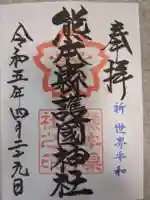 奉拝
祈 世界平和
熊本縣護國神社
令和五年四月二十九日